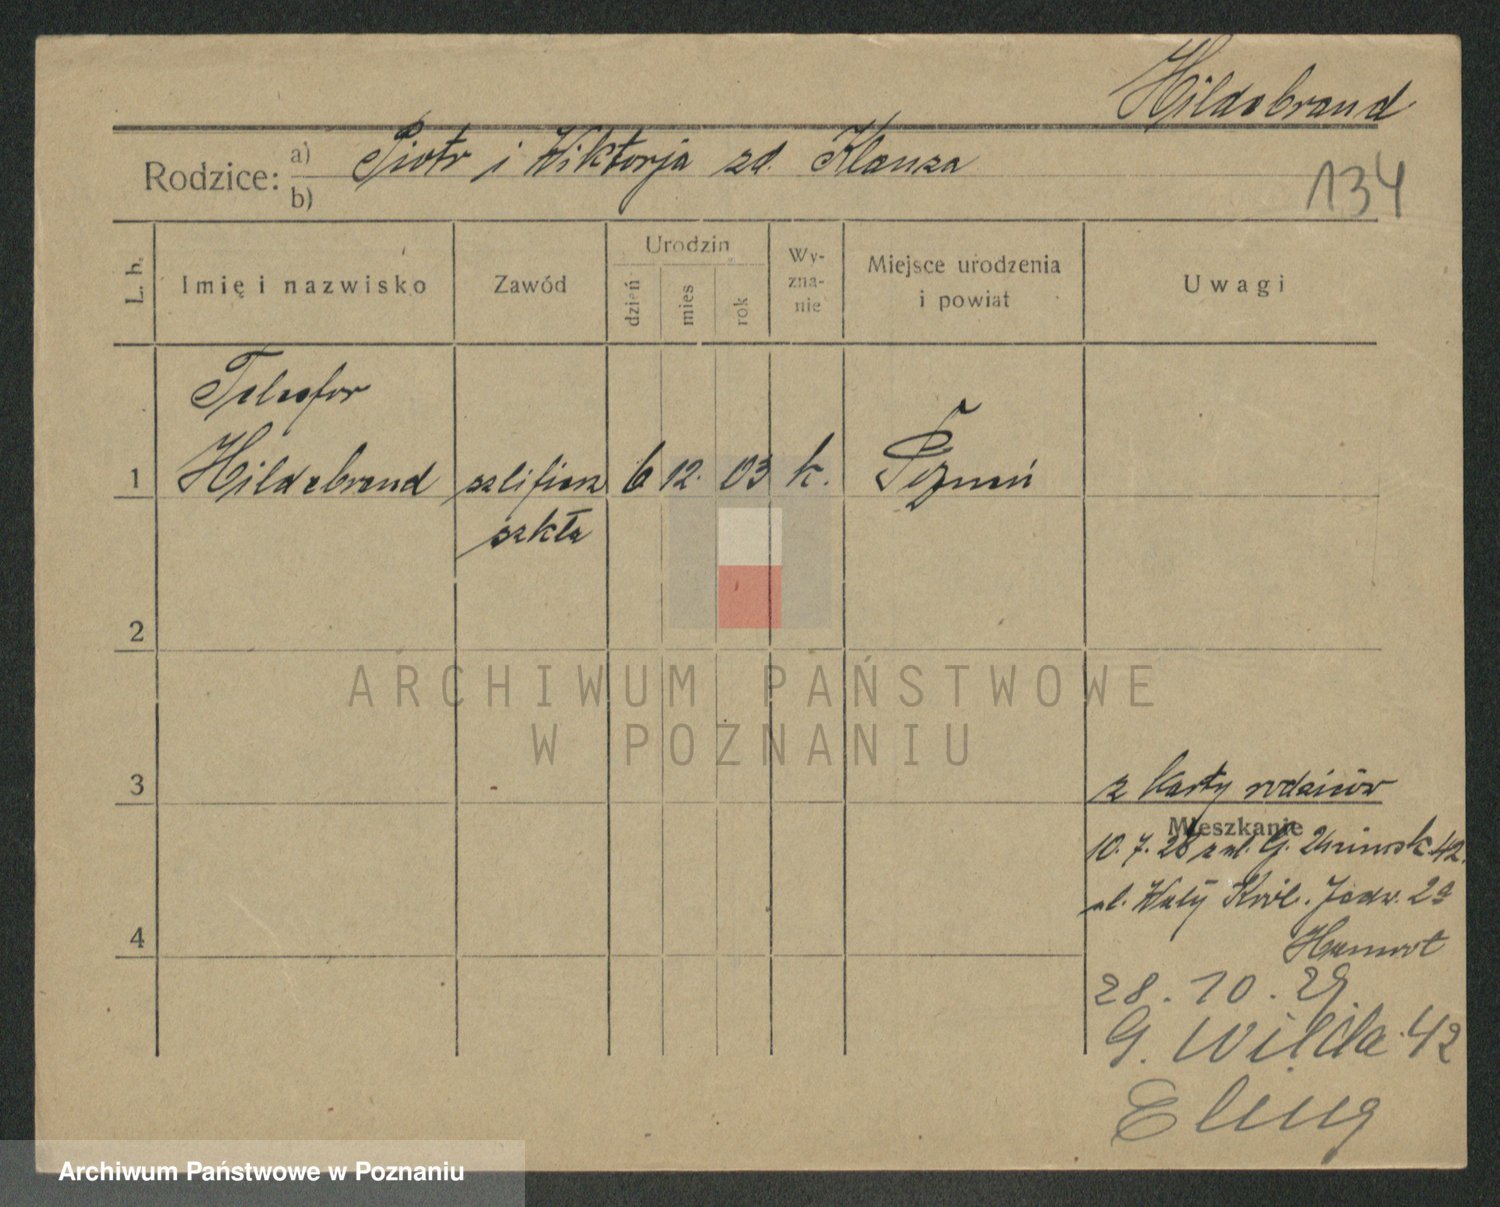 Hildebrand
Rodzice: a) Piotr i Wiktorja zd. Klauza
b)
134
L. b.
Imię i nazwisko
Zawód
Urodzin
dzień
mies
rok
Wy-
zna-
nie
Miejsce urodzenia
i powiat
Uwagi
Telesfor
1 Hildebrand szlifierz 6 12. 03 k. Poznań
szkła
2
3
z karty rodziców
Mieszkanie
10. 7. 28 z ul. G. 42.
ul. Wały Król. Jadw. 2a
4
28. 10. 29
G. Wilda 42
ARCHIWUM PAŃSTWOWE
W POZNANIU
Archiwum Państwowe w Poznaniu